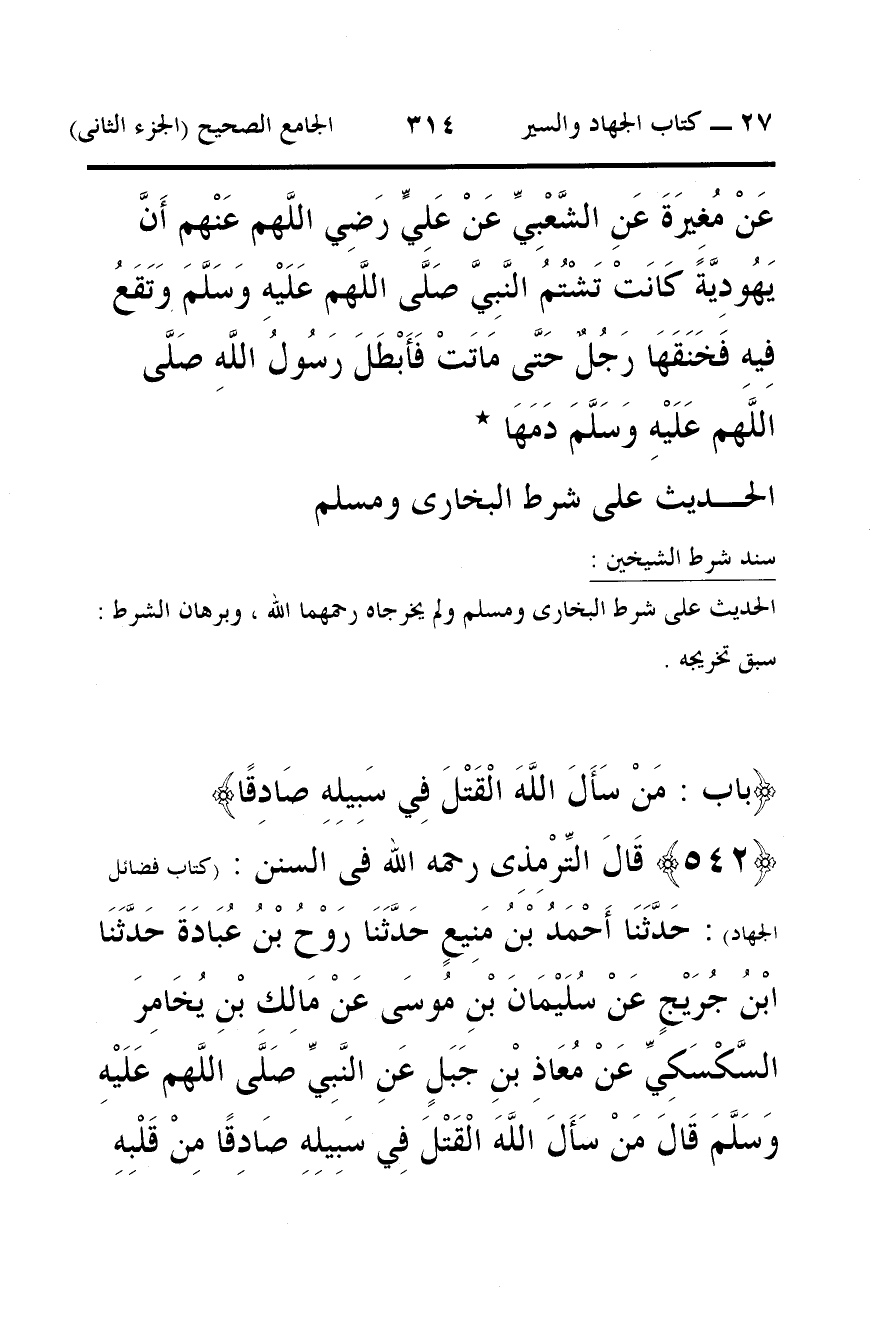 ٢٧ ــ كتاب الجهاد والسير ٣١٤ الجامع الصحيح (الجزء الثانى)
عَنْ مُغِيرَةَ عَنِ الشَّعْبِيِّ عَنْ عَلِيٍّ رَضِي اللَّهم عَنْهم أَنَّ
يَهُودِيَّةً كَانَتْ تَشْتُمُ النَّبِيَّ صَلَّى اللهم عَلَيْهِ وَسَلَّمَ وَتَقَعُ
فِيهِ فَخَنَقَهَا رَجُلٌ حَتَّى مَاتَتْ فَأَبْطَلَ رَسُولُ اللَّهِ صَلَّى
اللَّهم عَلَيْهِ وَسَلَّمَ دَمَهَا *
الحـــديث على شرط البخارى ومسلم
سند شرط الشيخين :
الحديث على شرط البخارى ومسلم ولم يخرجاه رحمهما الله ، وبرهان الشرط :
سبق تخريجه .
﴿باب : مَنْ سَأَلَ اللَّهَ الْقَتْلَ فِي سَبِيلِهِ صَادِقًا﴾
﴿٥٤٢﴾ قَالَ التِّرْمِذِى رحمه الله فى السنن : (كتاب فضائل
الجهاد) : حَدَّثَنَا أَحْمَدُ بْنُ مَنِيعٍ حَدَّثَنَا رَوْحُ بْنُ عُبَادَةَ حَدَّثَنَا
ابْنُ جُرَيْجٍ عَنْ سُلَيْمَانَ بْنِ مُوسَى عَنْ مَالِكِ بْنِ يُخَامِرَ
السَّكْسَكِيِّ عَنْ مُعَاذِ بْنِ جَبَلٍ عَنِ النَّبِيِّ صَلَّى اللهم عَلَيْهِ
وَسَلَّمَ قَالَ مَنْ سَأَلَ اللَّهَ الْقَتْلَ فِي سَبِيلِهِ صَادِقًا مِنْ قَلْبِهِ